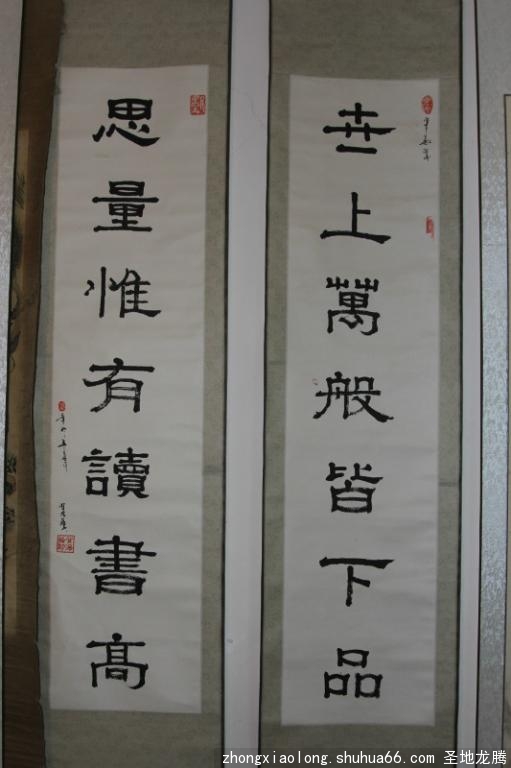 世上萬般皆下品
思量惟有讀書高
zhongxiaolong.shuhua66.com 圣地龙腾